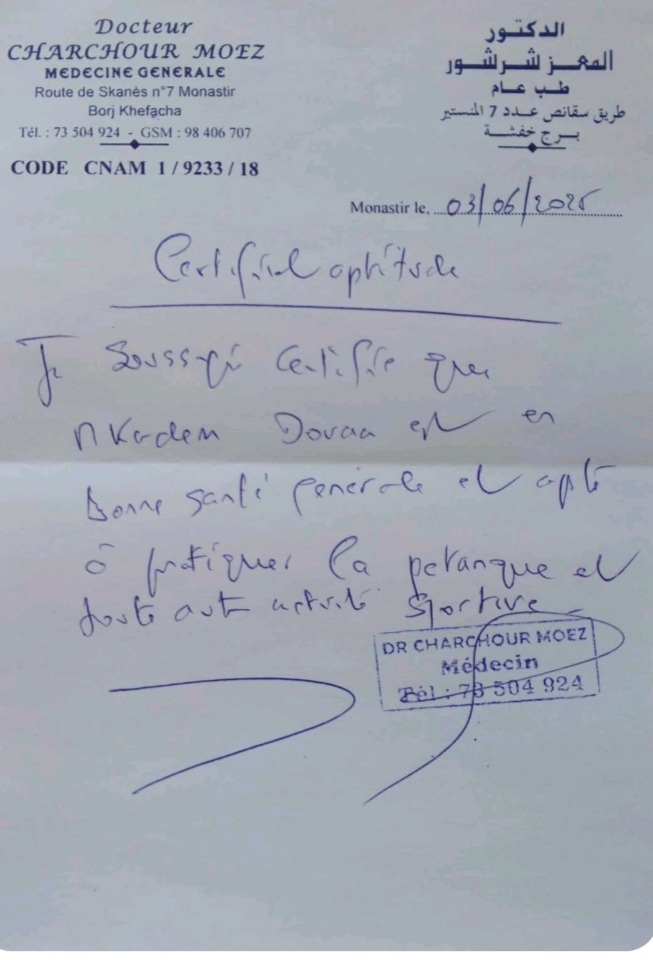 Docteur
CHARCHOUR MOEZ
MEDECINE GENERALE
Route de Skanès n°7 Monastir
Borj Khefacha
Tél. : 73 504 924 - GSM : 98 406 707
CODE CNAM 1 / 9233 / 18
الدكتور
المعز شرشور
طب عام
طريق سقانص عدد 7 المنستير
برج خفشة
Monastir le, 03/06/2025
Certificat aptitude
Je soussigné certifie que
Mkadem Douaa est en
bonne santé générale et apte
à pratiquer la petanque et
toute autre activité sportive
DR CHARCHOUR MOEZ
Médecin
Tél : 73 504 924